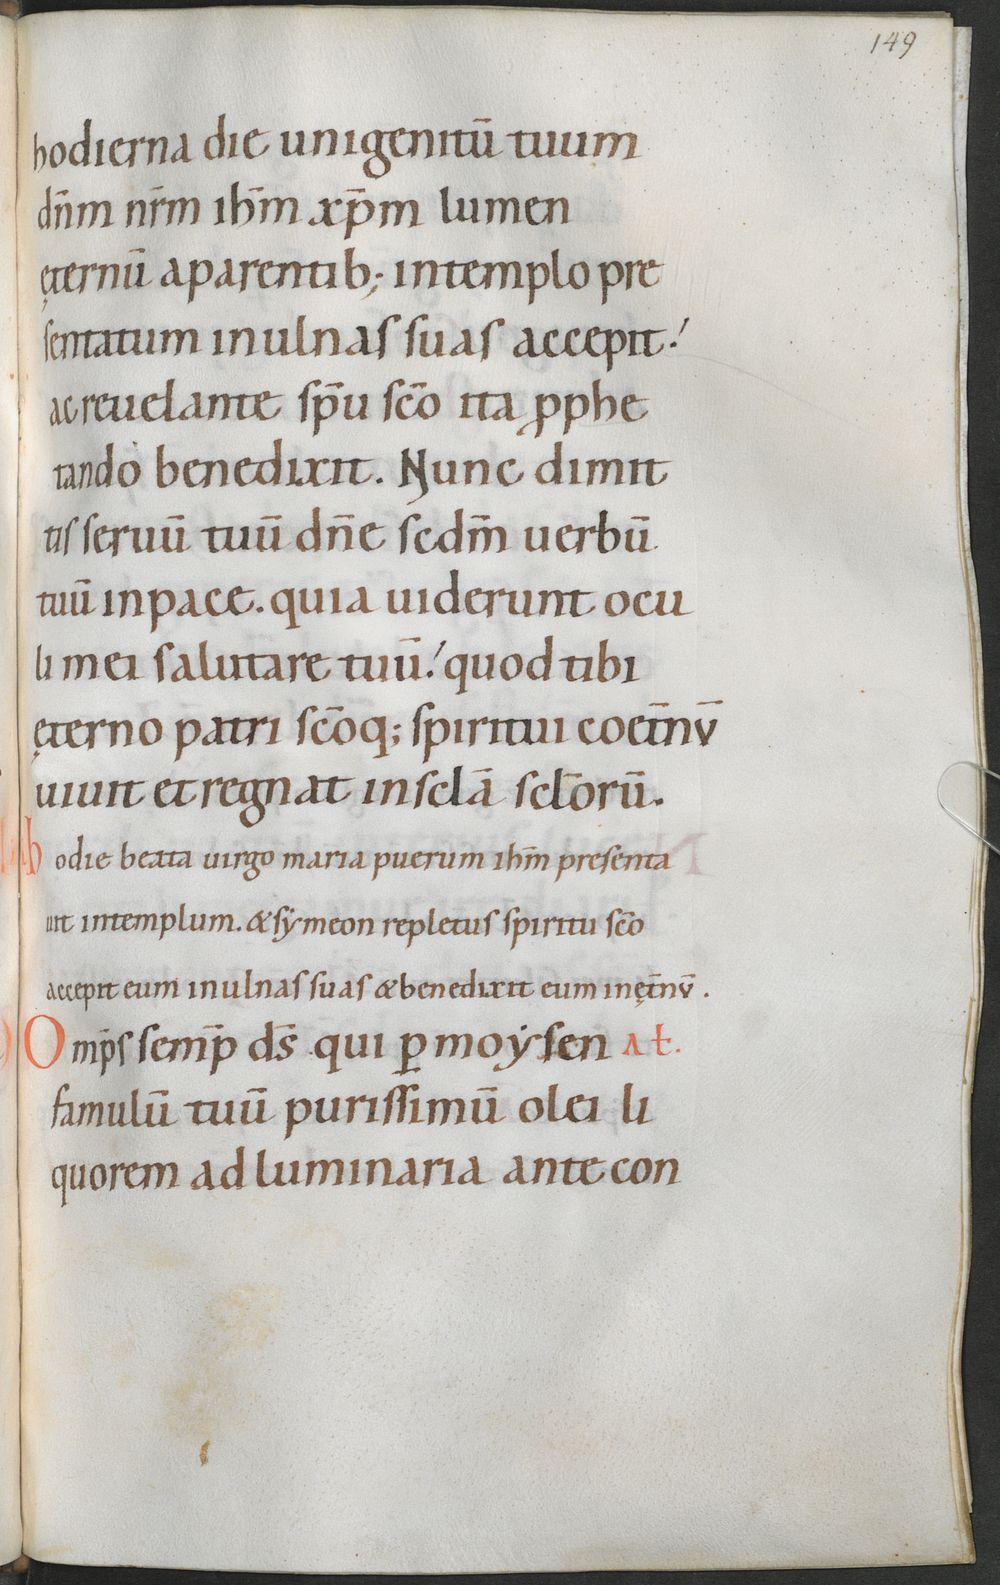 149
hodierna die unigenitū tuum
dn̄m nr̄m ihm̄ xp̄m lumen
ęternū aparentib; intemplo pre
sentatum inulnas suas accepit!
ac reuelante sp̄u sc̄o ita ꝓphe
tando benedixit. Nunc dimit
tis seruū tuū dn̄e scdm̄ uerbū
tuū inpace. quia uiderunt ocu
li mei salutare tuū! quod tibi
ęterno patri sc̄oq; spiritui coet̄nv̄
uiuit et regnat insclā scl̄orū.
hodie beata uirgo maria puerum ihm̄ presenta
uit intemplum. & sẏmeon repletus spiritu sc̄o
accepit eum inulnas suas & benedixit eum inęt̄nv̄.
Omp̄s semp̄ ds̄ qui ꝑ moẏsen At̄.
famulū tuū purissimū olei li
quorem ad luminaria ante con